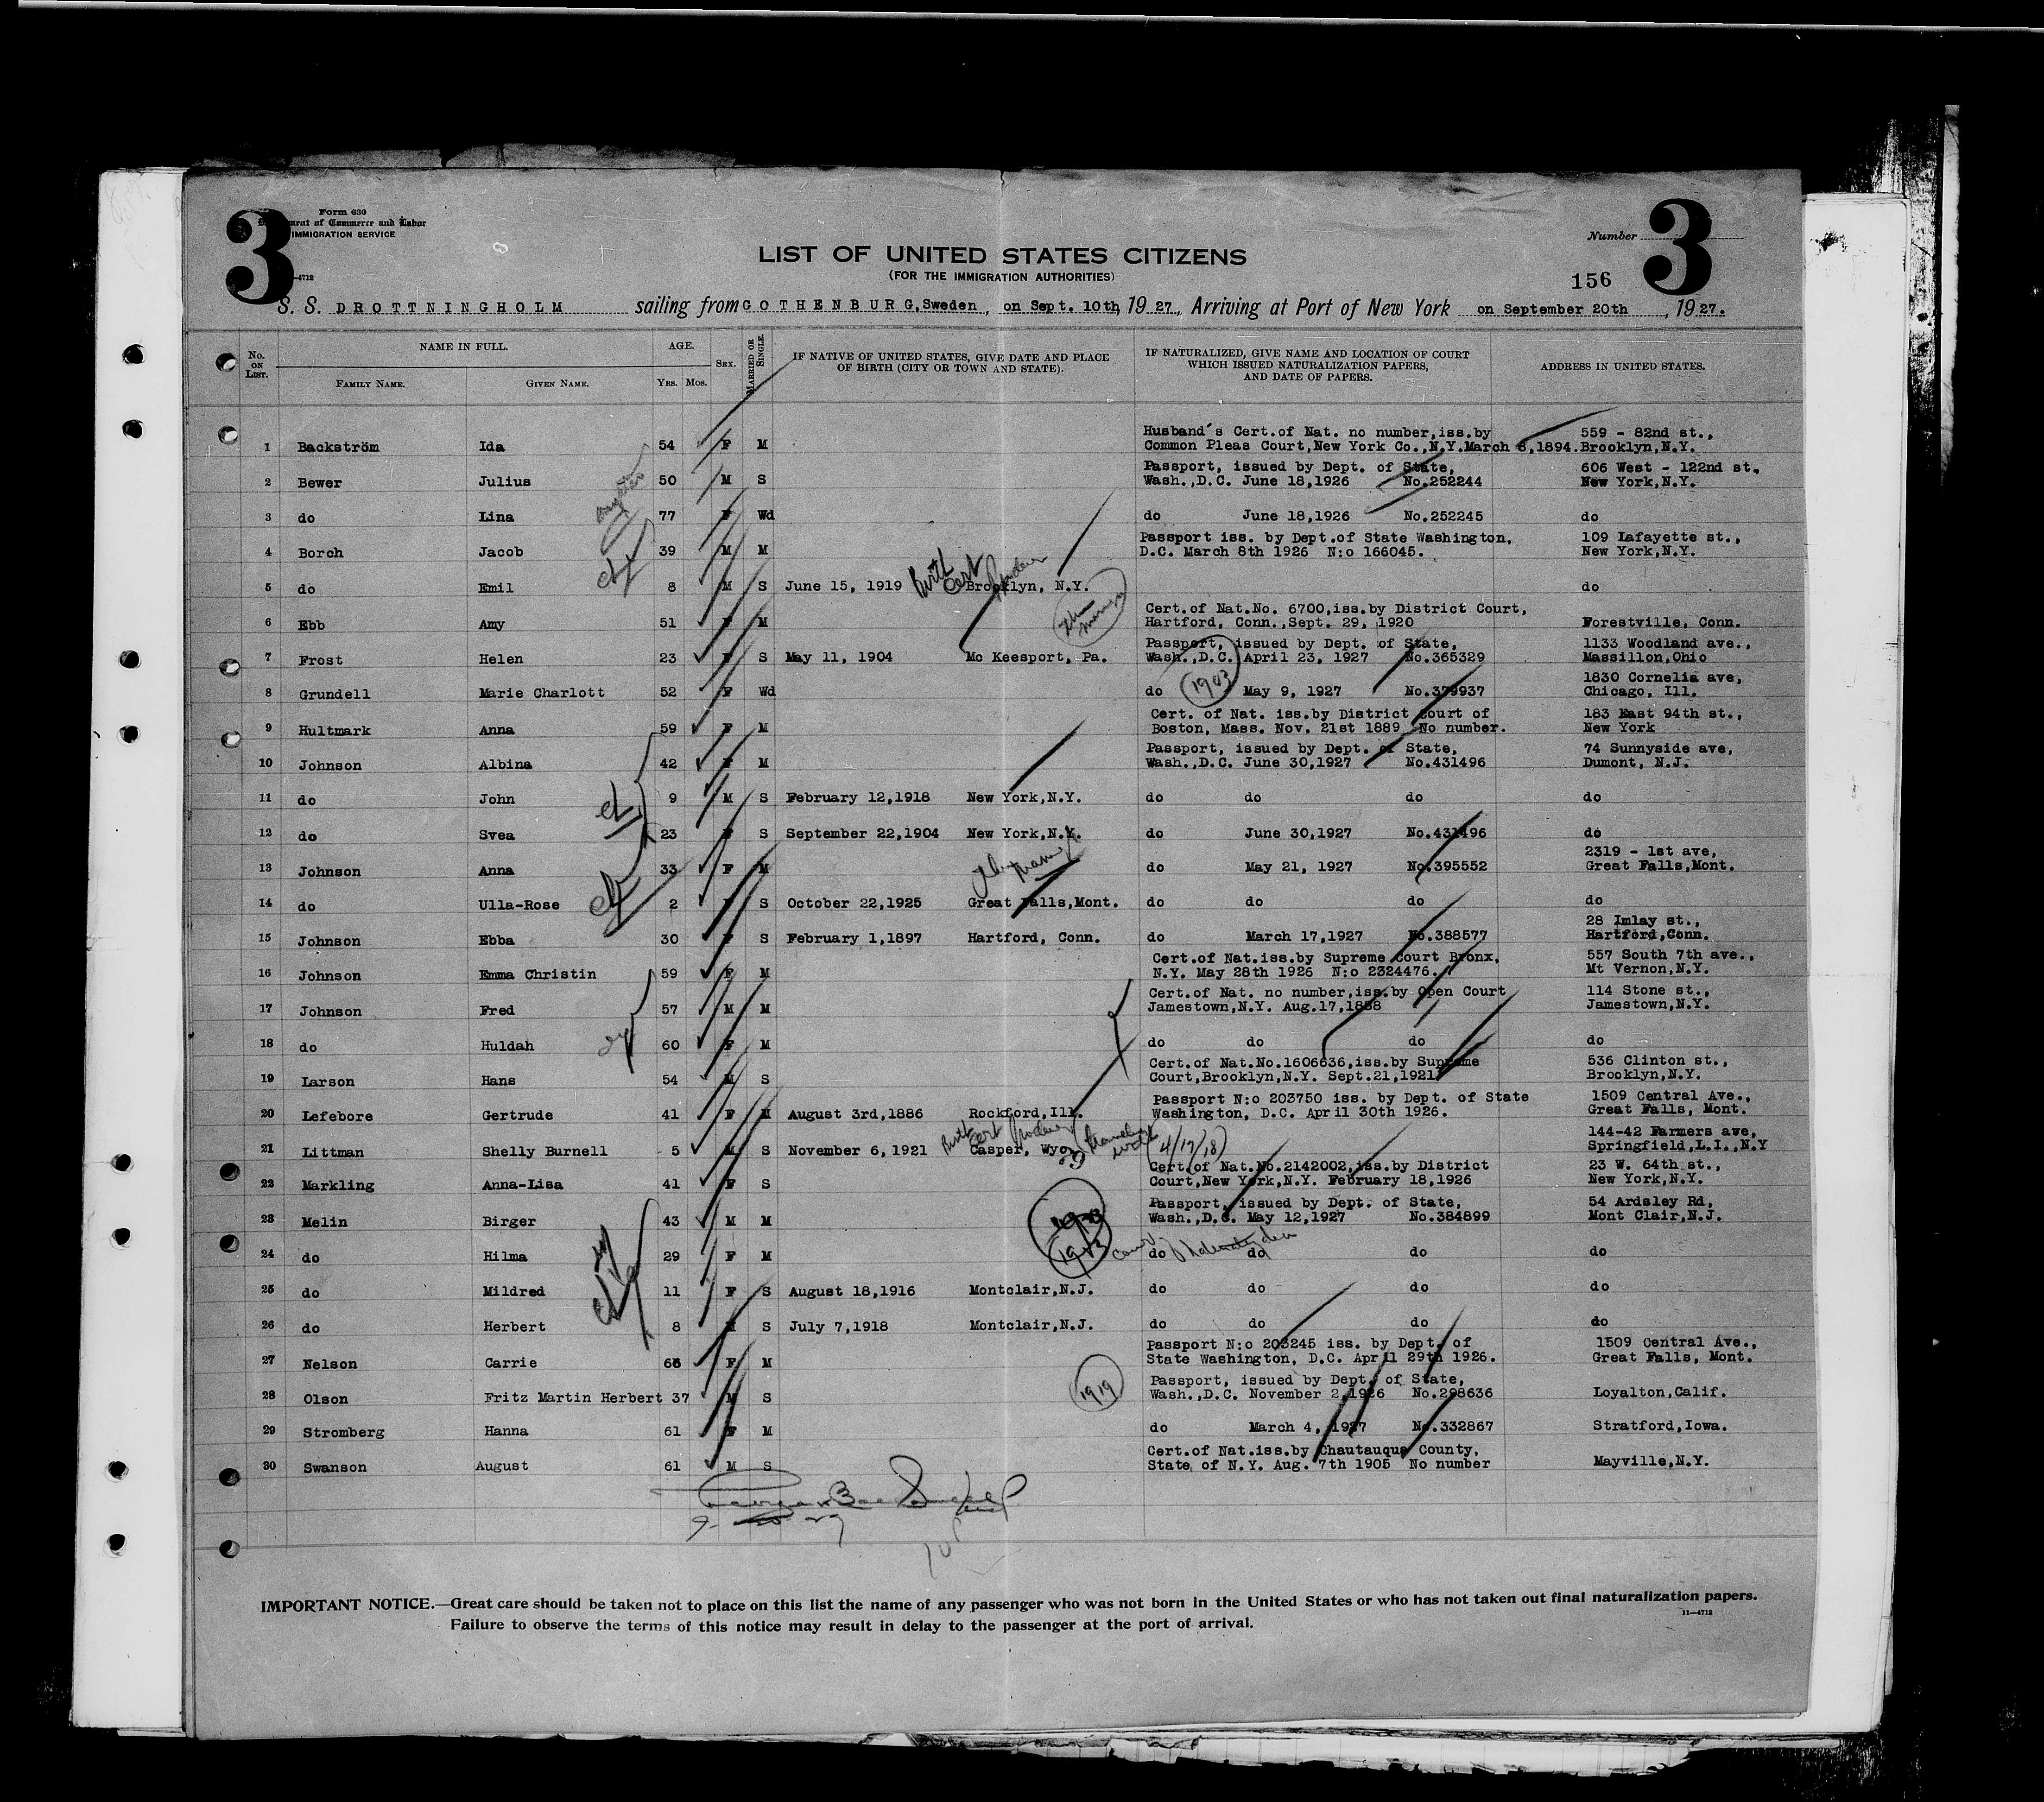 3
Form 630
ment of Commerce and Labor
IMMIGRATION SERVICE
—4712
LIST OF UNITED STATES CITIZENS
(FOR THE IMMIGRATION AUTHORITIES)
Number
3
156
S. S. DROTTNINGHOLM sailing from GOTHENBURG, Sweden, on Sept. 10th, 1927, Arriving at Port of New York on September 20th, 1927.
No. ON LIST. NAME IN FULL. FAMILY NAME. GIVEN NAME. AGE. YRS. MOS. SEX. MARRIED OR SINGLE. IF NATIVE OF UNITED STATES, GIVE DATE AND PLACE OF BIRTH (CITY OR TOWN AND STATE). IF NATURALIZED, GIVE NAME AND LOCATION OF COURT WHICH ISSUED NATURALIZATION PAPERS, AND DATE OF PAPERS. ADDRESS IN UNITED STATES.
1 Backström Ida 54 F M Husband's Cert.of Nat. no number,iss.by Common Pleas Court,New York Co.,N.Y.March 8,1894. 559 - 82nd st., Brooklyn,N.Y.
2 Bewer Julius 50 M S Passport, issued by Dept. of State, Wash.,D.C. June 18,1926 No.252244 606 West - 122nd st, New York,N.Y.
3 do Lina 77 F Wd do June 18,1926 No.252245 do
4 Borch Jacob 39 M M Passport iss. by Dept.of State Washington, D.C. March 8th 1926 N:o 166045. 109 Lafayette st., New York,N.Y.
5 do Emil 8 M S June 15, 1919 Birth Cert Brooklyn, N.Y. do
6 Ebb Amy 51 F M Cert.of Nat.No. 6700,iss.by District Court, Hartford, Conn.,Sept. 29, 1920 Forestville, Conn.
7 Frost Helen 23 F S May 11, 1904 Mc Keesport, Pa. Passport, issued by Dept. of State, Wash.,D.C. April 23, 1927 No.365329 1133 Woodland ave., Massillon,Ohio
8 Grundell Marie Charlott 52 F Wd do 1903 May 9, 1927 No.379937 1830 Cornelia ave, Chicago, Ill.
9 Hultmark Anna 59 F M Cert. of Nat. iss.by District Court of Boston, Mass. Nov. 21st 1889 No number. 183 East 94th st., New York
10 Johnson Albina 42 F M Passport, issued by Dept. of State, Wash.,D.C. June 30,1927 No.431496 74 Sunnyside ave, Dumont, N.J.
11 do John 9 M S February 12,1918 New York,N.Y. do do do do
12 do Svea 23 F S September 22,1904 New York,N.Y. do June 30,1927 No.431496 do
13 Johnson Anna 33 F M do May 21, 1927 No.395552 2319 - 1st ave, Great Falls,Mont.
14 do Ulla-Rose 2 F S October 22,1925 Great Falls,Mont. do do do do
15 Johnson Ebba 30 F S February 1,1897 Hartford, Conn. do March 17,1927 No.388577 28 Imlay st., Hartford,Conn.
16 Johnson Emma Christin 59 F M Cert.of Nat.iss.by Supreme Court Bronx, N.Y. May 28th 1926 N:o 2324476. 557 South 7th ave., Mt Vernon,N.Y.
17 Johnson Fred 57 M M Cert.of Nat. no number,iss.by Open Court Jamestown,N.Y. Aug.17,1888 114 Stone st., Jamestown,N.Y.
18 do Huldah 60 F M do do do do
19 Larson Hans 54 M S Cert.of Nat.No.1606636,iss.by Supreme Court,Brooklyn,N.Y. Sept.21,1921. 536 Clinton st., Brooklyn,N.Y.
20 Lefebore Gertrude 41 F M August 3rd,1886 Rockford,Ill. Passport N:o 203750 iss. by Dept. of State Washington, D.C. April 30th 1926. 1509 Central Ave., Great Falls, Mont.
21 Littman Shelly Burnell 5 M S November 6, 1921 Birth Cert Casper, Wyo 144-42 Farmers ave, Springfield,L.I.,N.Y
22 Markling Anna-Lisa 41 F S Cert.of Nat.No.2142002,iss.by District Court,New York,N.Y. February 18,1926 23 W. 64th st., New York,N.Y.
23 Melin Birger 43 M M Passport, issued by Dept. of State, Wash.,D.C. May 12,1927 No.384899 54 Ardsley Rd, Mont Clair,N.J.
24 do Hilma 29 F M 1903 do do do do
25 do Mildred 11 F S August 18,1916 Montclair,N.J. do do do do
26 do Herbert 8 M S July 7,1918 Montclair,N.J. do do do do
27 Nelson Carrie 66 F M Passport N:o 203245 iss. by Dept. of State Washington, D.C. April 29th 1926. 1509 Central Ave., Great Falls, Mont.
28 Olson Fritz Martin Herbert 37 M S 1919 Passport, issued by Dept. of State, Wash.,D.C. November 2,1926 No.298636 Loyalton,Calif.
29 Stromberg Hanna 61 F M do March 4, 1927 No.332867 Stratford,Iowa.
30 Swanson August 61 M S Cert.of Nat.iss.by Chautauqua County, State of N.Y. Aug. 7th 1905 No number Mayville,N.Y.
IMPORTANT NOTICE.—Great care should be taken not to place on this list the name of any passenger who was not born in the United States or who has not taken out final naturalization papers.
11—4712
Failure to observe the terms of this notice may result in delay to the passenger at the port of arrival.